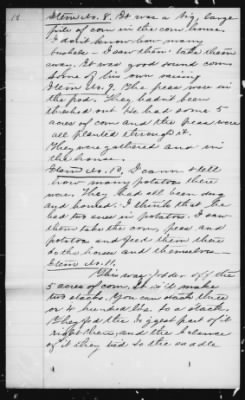 Item No. 8. It was a big large
pile of corn in the corn house.
I don't know how many
bushels - I saw them take them
away. It was good sound corn
some of his own raising
Item No. 9. The peas were in
the pod. They hadn't been
thrashed out. He had some 5
acres of corn and the peas were
all planted through it.
They were gathered and in
the house.
Item No. 10. I cannot tell
how many potatoes there
was. They had all been dug
and housed. I think that he
had two acres in potatoes. I saw
them take the corn, peas and
potatoes and feed them there
to the horses and themselves -
Item No. 11.
This was fodder off the
5 acres of corn. It would make
two stacks. You can stack three
or 4 hundred lbs to a stack.
They fed the biggest part of it
right there, and the balance
of it they tied to the saddle